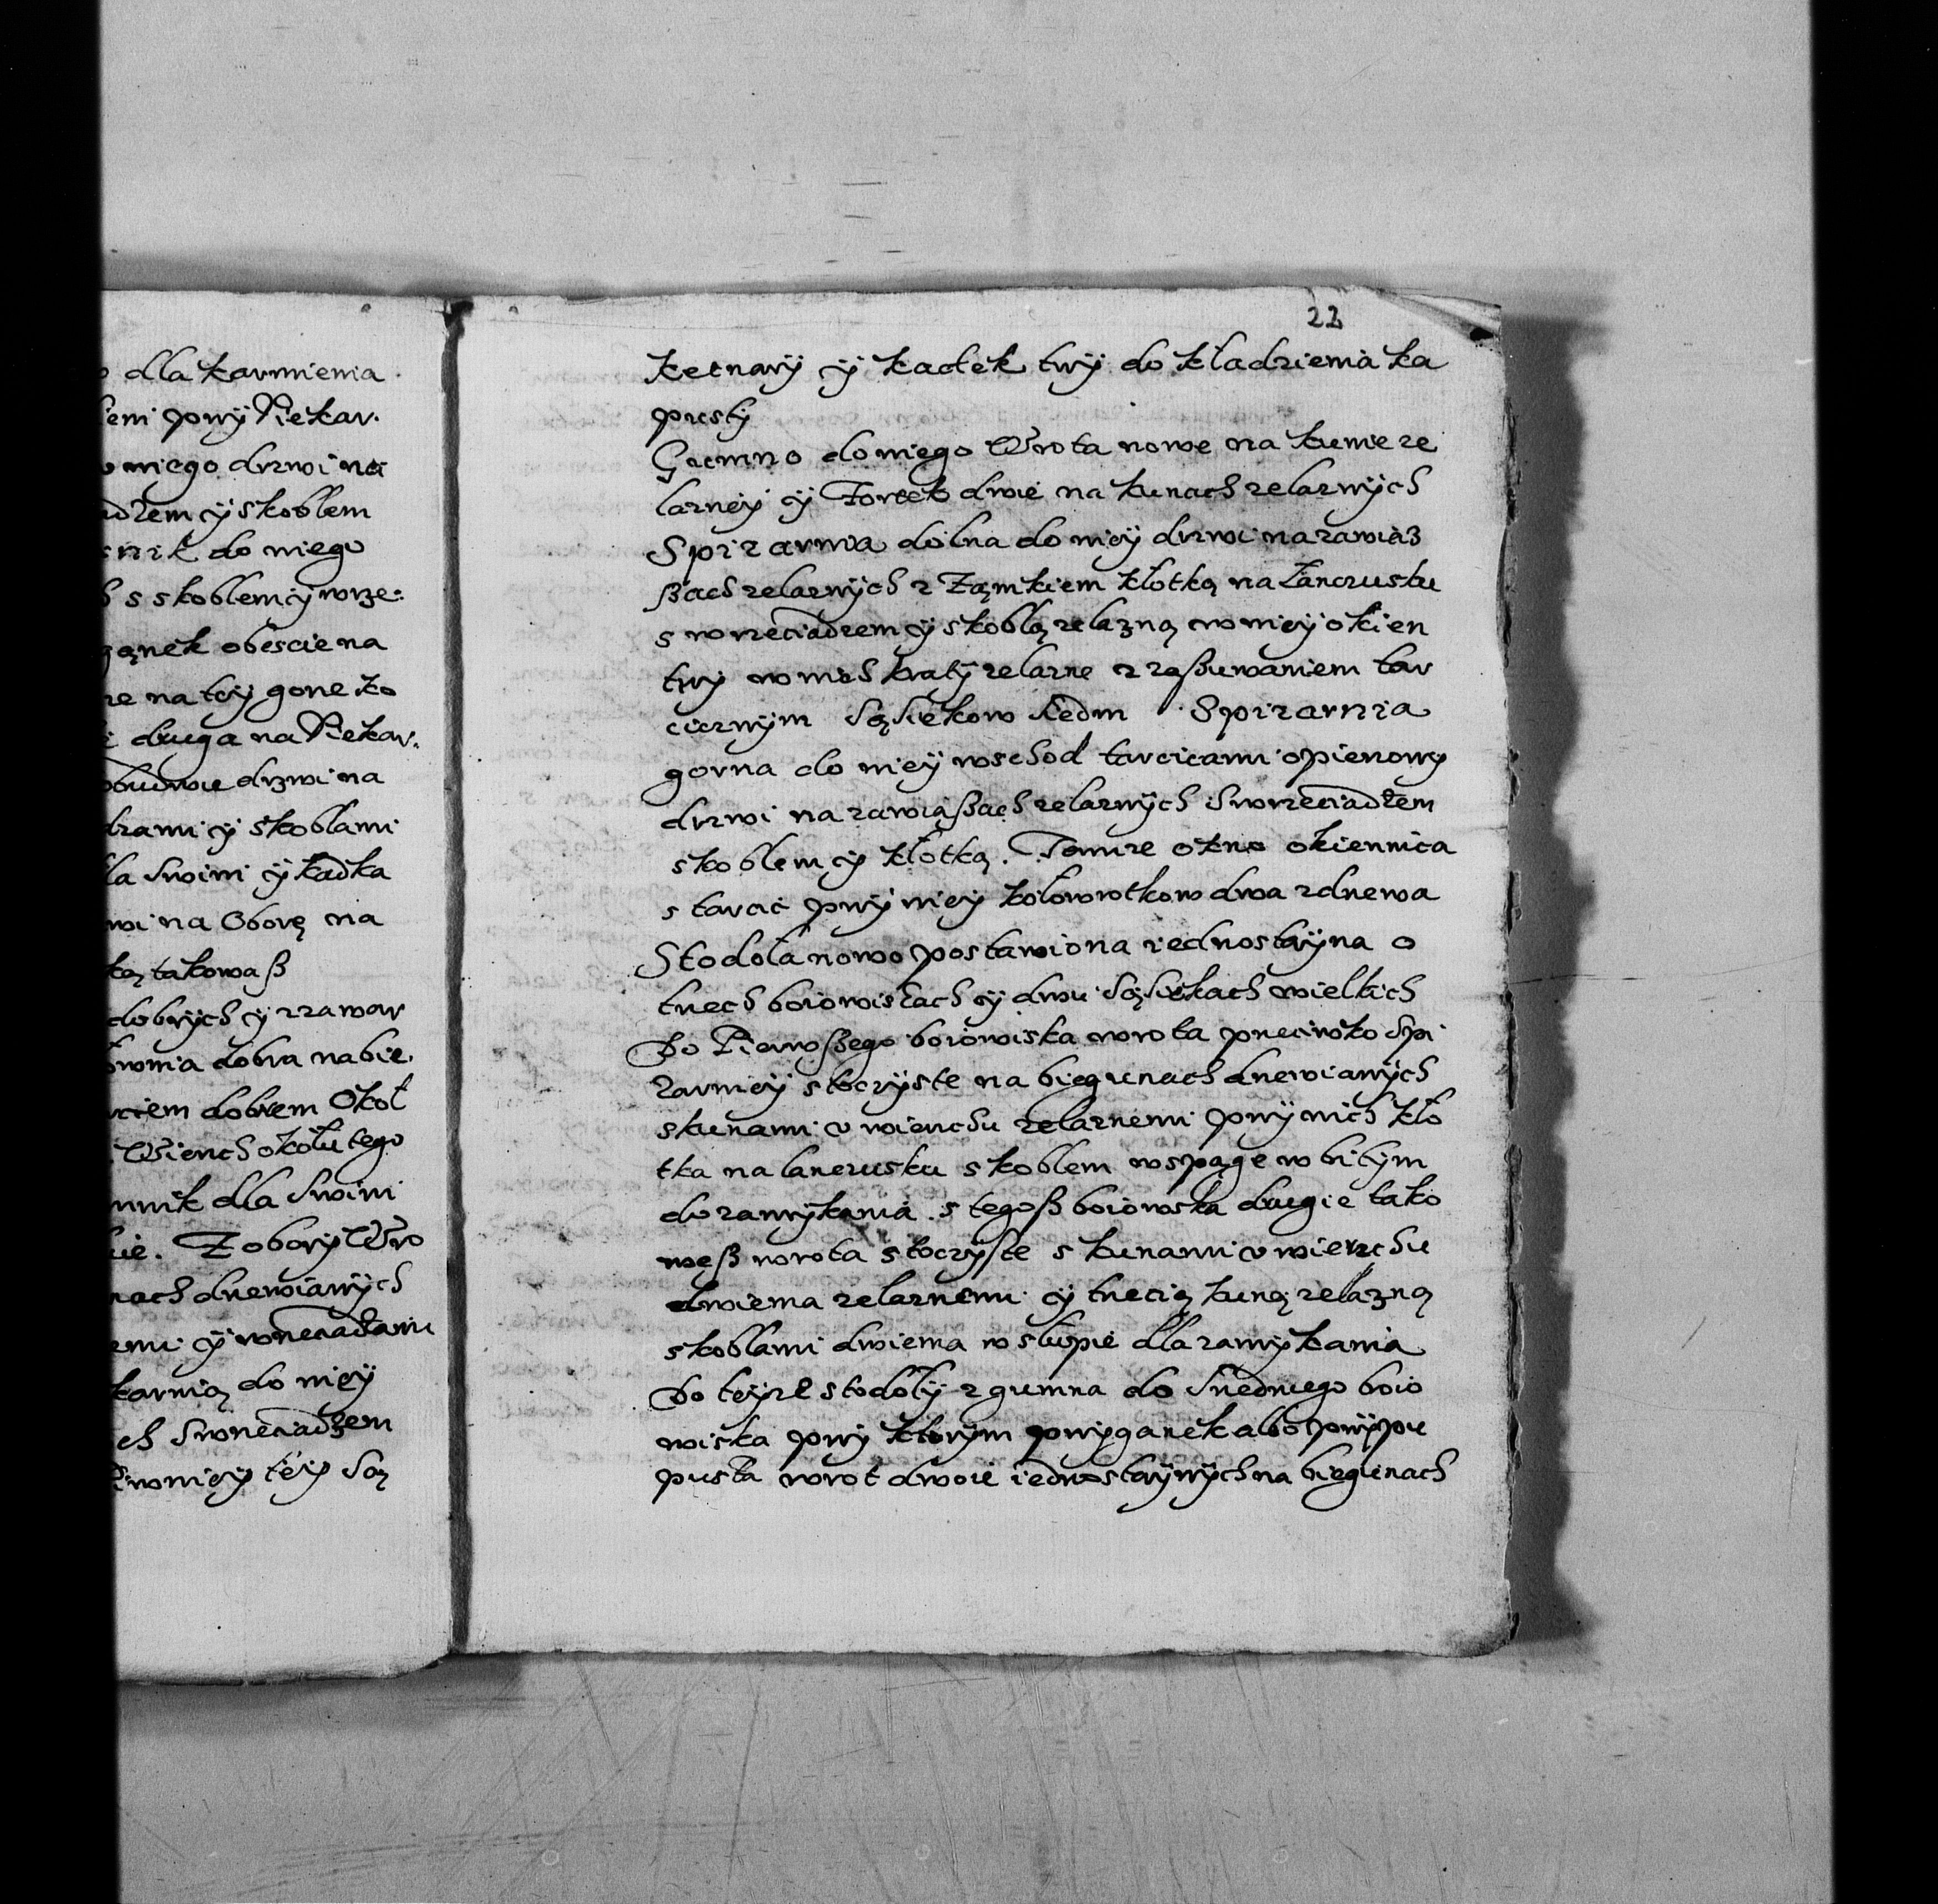 dla karmienia
iem przy Piekar.
niego drzwi na
adłem y skoblem
snik do niego
s skoblem y wrze:
ganek obescie na
re na tey gorze ko
druga na Piekar.
obudwu drzwi na
drami y skoblami
la Swini y kadka
wi na Oborę na
ką takowaß
dobrych y zzawar
ownia dobra na bie.
ciem dobrem Okoł
Wierzch okołu tego
nnik dla Swini
kie. Z obory Wro
nach drzewianych
emi y wrzeciadzami
karnią do niey
ch Swrzeciadzem
w niey tey Są
22
ketnary y kadek trzy do kładzienia ka
pusty
Gumno do niego Wrota nowe na kunie ze
lazney y Fortek dwie na kunach zelaznych
Spizarnia dolna do niey drzwi na zawiaz
ßach zelaznych z Zamkiem kłotką na Łancusku
s wrzeciadzem y skoblą zelazną w niey okien
trzy w nich kraty zelazne z zaßuwaniem tar
cicznym Sąsiekow siedm Spizarnia
gorna do niey wschod tarcicami opierzony
drzwi na zawiąßach zelaznych Swrzeciadzem
skoblem y kłotką. Tamze okno okiennica
s tarcic przy niey kołowrotkow dwa z drzewa
Stodoła nowo postawiona iednostayna o
trzech boiowiskach y dwu Sąsiekach wielkich
Do Pierwßego boiowiska wrota przeciwko Spi
zarniey stoczyste na biegunach drzewianych
skunami v wierzchu zelaznemi przy nich kło
tka na lancusku skoblem wspągę wbitym
do zamykania. s tegoß boiowska drugie tako
weß wrota stoczyste s kunami v wierzchu
dwiema zelaznemi y trzecią kuną zelazną
skoblami dwiema w słupie dla zamykania
Do teyze stodoły z gumna do Srzedniego boio
wiska przy ktorym przyganek albo przypu
pusta wrot dwoie iednostaynych na biegunach